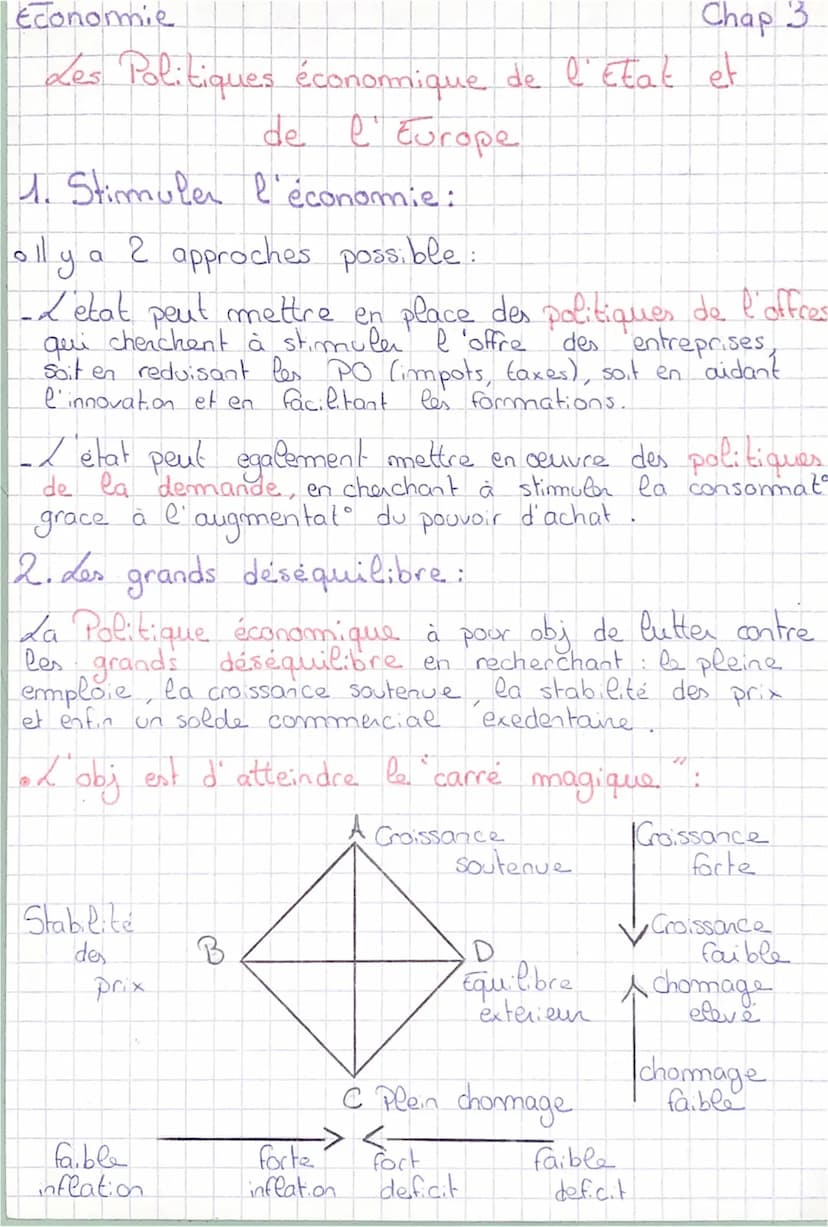 Economie Chap 3
Les Politiques économique de l'Etat et
de l'Europe
1. Stimuler l'économie :
• Il y a 2 approches possible :
- L'état peut mettre en place des politiques de l'offres
qui cherchent à stimuler l'offre des entreprises,
soit en reduisant les PO (impots, taxes), soit en aidant
l'innovation et en facilitant les formations.
- L'état peut egalement mettre en œuvre des politiques
de la demande, en cherchant à stimuler la consommat°
grace à l'augmentat° du pouvoir d'achat.
2. Les grands déséquilibre :
La Politique économique à pour obj de lutter contre
les grands déséquilibre en recherchant : le pleine
emploie, la croissance soutenue, la stabilité des prix
et enfin un solde commercial exedentaire.
• L'obj est d'atteindre le "carré magique" :
A Croissance
soutenue
Croissance
forte
Stabilité
des
prix
B
D
Equilibre
extérieur
Croissance
faible
chomage
elevé
chomage
faible
C Plein chomage
faible
inflation
forte
inflation
fort
deficit
faible
deficit